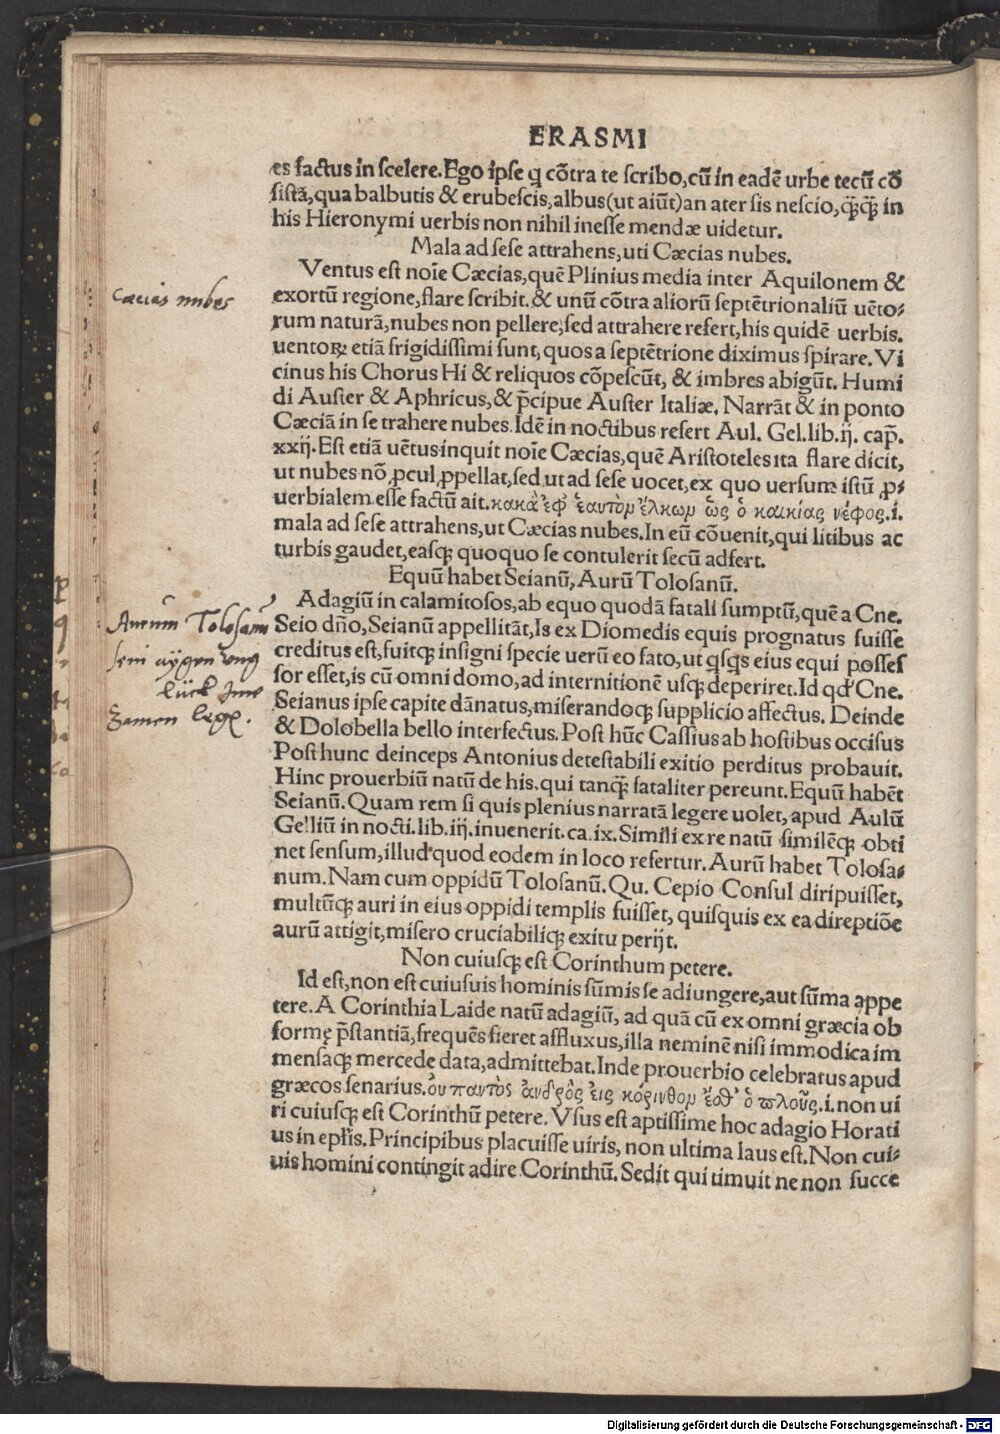 ERASMI
es factus in scelere. Ego ipse q cōtra te scribo, cū in eadē urbe tecū cō
sistā, qua balbutis & erubescis, albus (ut aiūt) an ater sis nescio, q̃q̃ in
his Hieronymi uerbis non nihil inesse mendæ uidetur.
Mala ad sese attrahens, uti Cæcias nubes.
Ventus est noīe Cæcias, quē Plinius media inter Aquilonem &
exortū regione, flare scribit. & unū cōtra aliorū septētrionaliū uēto-
rum naturā, nubes non pellere, sed attrahere refert, his quidē uerbis.
uentoꝝ etiā frigidissimi sunt, quos a septētrione diximus spirare. Vi
cinus his Chorus Hi & reliquos cōpescūt, & imbres abigūt. Humi
di Auster & Aphricus, & p̄cipue Auster Italiæ. Narrāt & in ponto
Cæciā in se trahere nubes. Idē in noctibus refert Aul. Gel. lib. ij. cap̄.
xxij. Est etiā uētus inquit noīe Cæcias, quē Aristoteles ita flare dicit,
ut nubes nō ꝓcul ꝓpellat, sed ut ad sese uocet, ex quo uersum istū ꝓ-
uerbialem esse factū ait. κακὰ ἐφ' ἑαυτὸν ἕλκων ὡς ὁ καικίας νέφος. i.
mala ad sese attrahens, ut Cæcias nubes. In eū cōuenit, qui litibus ac
turbis gaudet, easqꝫ quoquo se contulerit secū adfert.
Equū habet Seianū, Aurū Tolosanū.
Adagiū in calamitosos, ab equo quodā fatali sumptū, quē a Cne.
Seio dño, Seianū appellitāt, Is ex Diomedis equis prognatus fuisse
creditus est, fuitqꝫ insigni specie uerū eo fato, ut qsqs eius equi posses
sor esset, is cū omni domo, ad internitionē usqꝫ deperiret. Id qd' Cne.
Seianus ipse capite dānatus, miserandoqꝫ supplicio affectus. Deinde
& Dolobella bello interfectus. Post hūc Cassius ab hostibus occisus
Post hunc deinceps Antonius detestabili exitio perditus probauit.
Hinc prouerbiū natū de his. qui tanq̃ fataliter pereunt. Equū habēt
Seianū. Quam rem si quis plenius narratā legere uolet, apud Aulū
Gelliū in nocti. lib. iij. inuenerit. ca. ix. Simili ex re natū similēqꝫ obti
net sensum, illud quod eodem in loco refertur. Aurū habet Tolosa-
num. Nam cum oppidū Tolosanū. Qu. Cepio Consul diripuisset,
multūqꝫ auri in eius oppidi templis fuisset, quisquis ex ea direptiōe
aurū attigit, misero cruciabiliqꝫ exitu perijt.
Non cuiusqꝫ est Corinthum petere.
Id est, non est cuiusuis hominis sūmis se adiungere, aut sūma appe
tere. A Corinthia Laide natū adagiū, ad quā cū ex omni græcia ob
formę p̄stantiā, frequēs fieret affluxus, illa neminē nisi immodica im
mensaqꝫ mercede data, admittebat. Inde prouerbio celebratus apud
græcos senarius. οὐ παντὸς ἀνδρὸς εἰς κόρινθον ἔσθ' ὁ πλοῦς. i. non ui
ri cuiusqꝫ est Corinthū petere. Vsus est aptissime hoc adagio Horati
us in epl'is. Principibus placuisse uiris, non ultima laus est. Non cui-
uis homini contingit adire Corinthū. Sedit qui timuit ne non succe
Cæcias nubes
Aurum Tolosanū
seni aygen ung
lück
Zamen
Digitalisierung gefördert durch die Deutsche Forschungsgemeinschaft - DFG